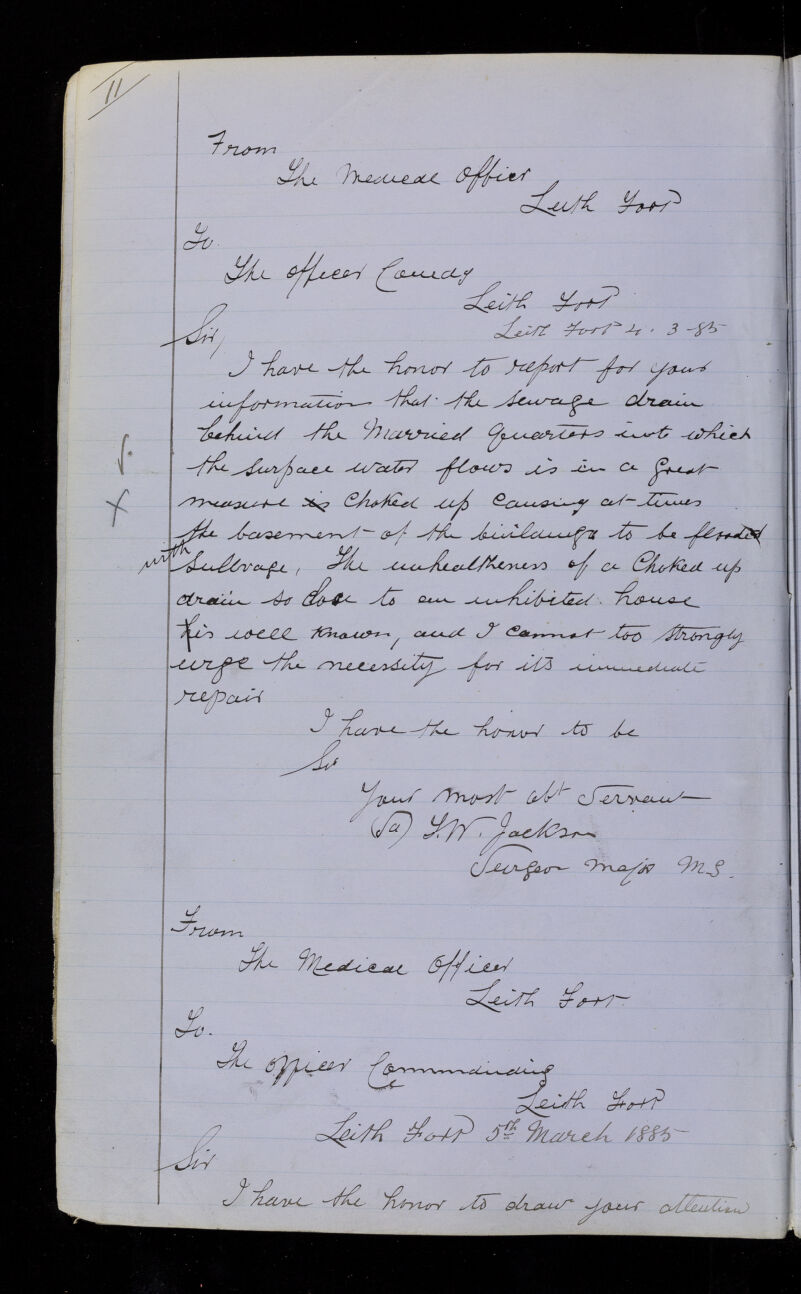 11
From
The Medical Officer
Leith Fort
To.
The Officer Comdg
Leith Fort
Leith Fort 4. 3-85
Sir,
I have the honor to report for your
information that the sewage drain
behind the Married Quarters into which
the surface water flows is in a great
measure is choked up causing at times
the basement of the buildings to be flooded
with Sullvage, The unhealtheness of a Choked up
drain so close to an inhibited house
is well known, and I cannot too strongly
urge the necessity for its immediate
repair
I have the honor to be
Sir
Your most obt Servant
(Sd) J.W. Jackson
Surgeon Major M.S.
From
The Medical Officer
Leith Fort.
To.
The Officer Commanding
Leith Fort
Leith Fort 5th March 1885
Sir
I have the honor to draw your attention